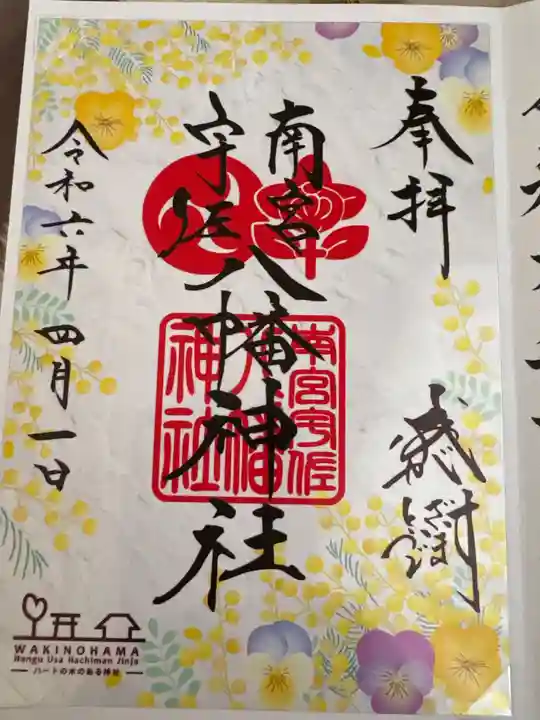 奉拝
感謝
南宮
宇佐
八幡神社
南宮宇佐
八幡
神社
令和六年 四月一日
WAKINOHAMA
Nangu Usa Hachiman Jinja
ハートの木のある神社